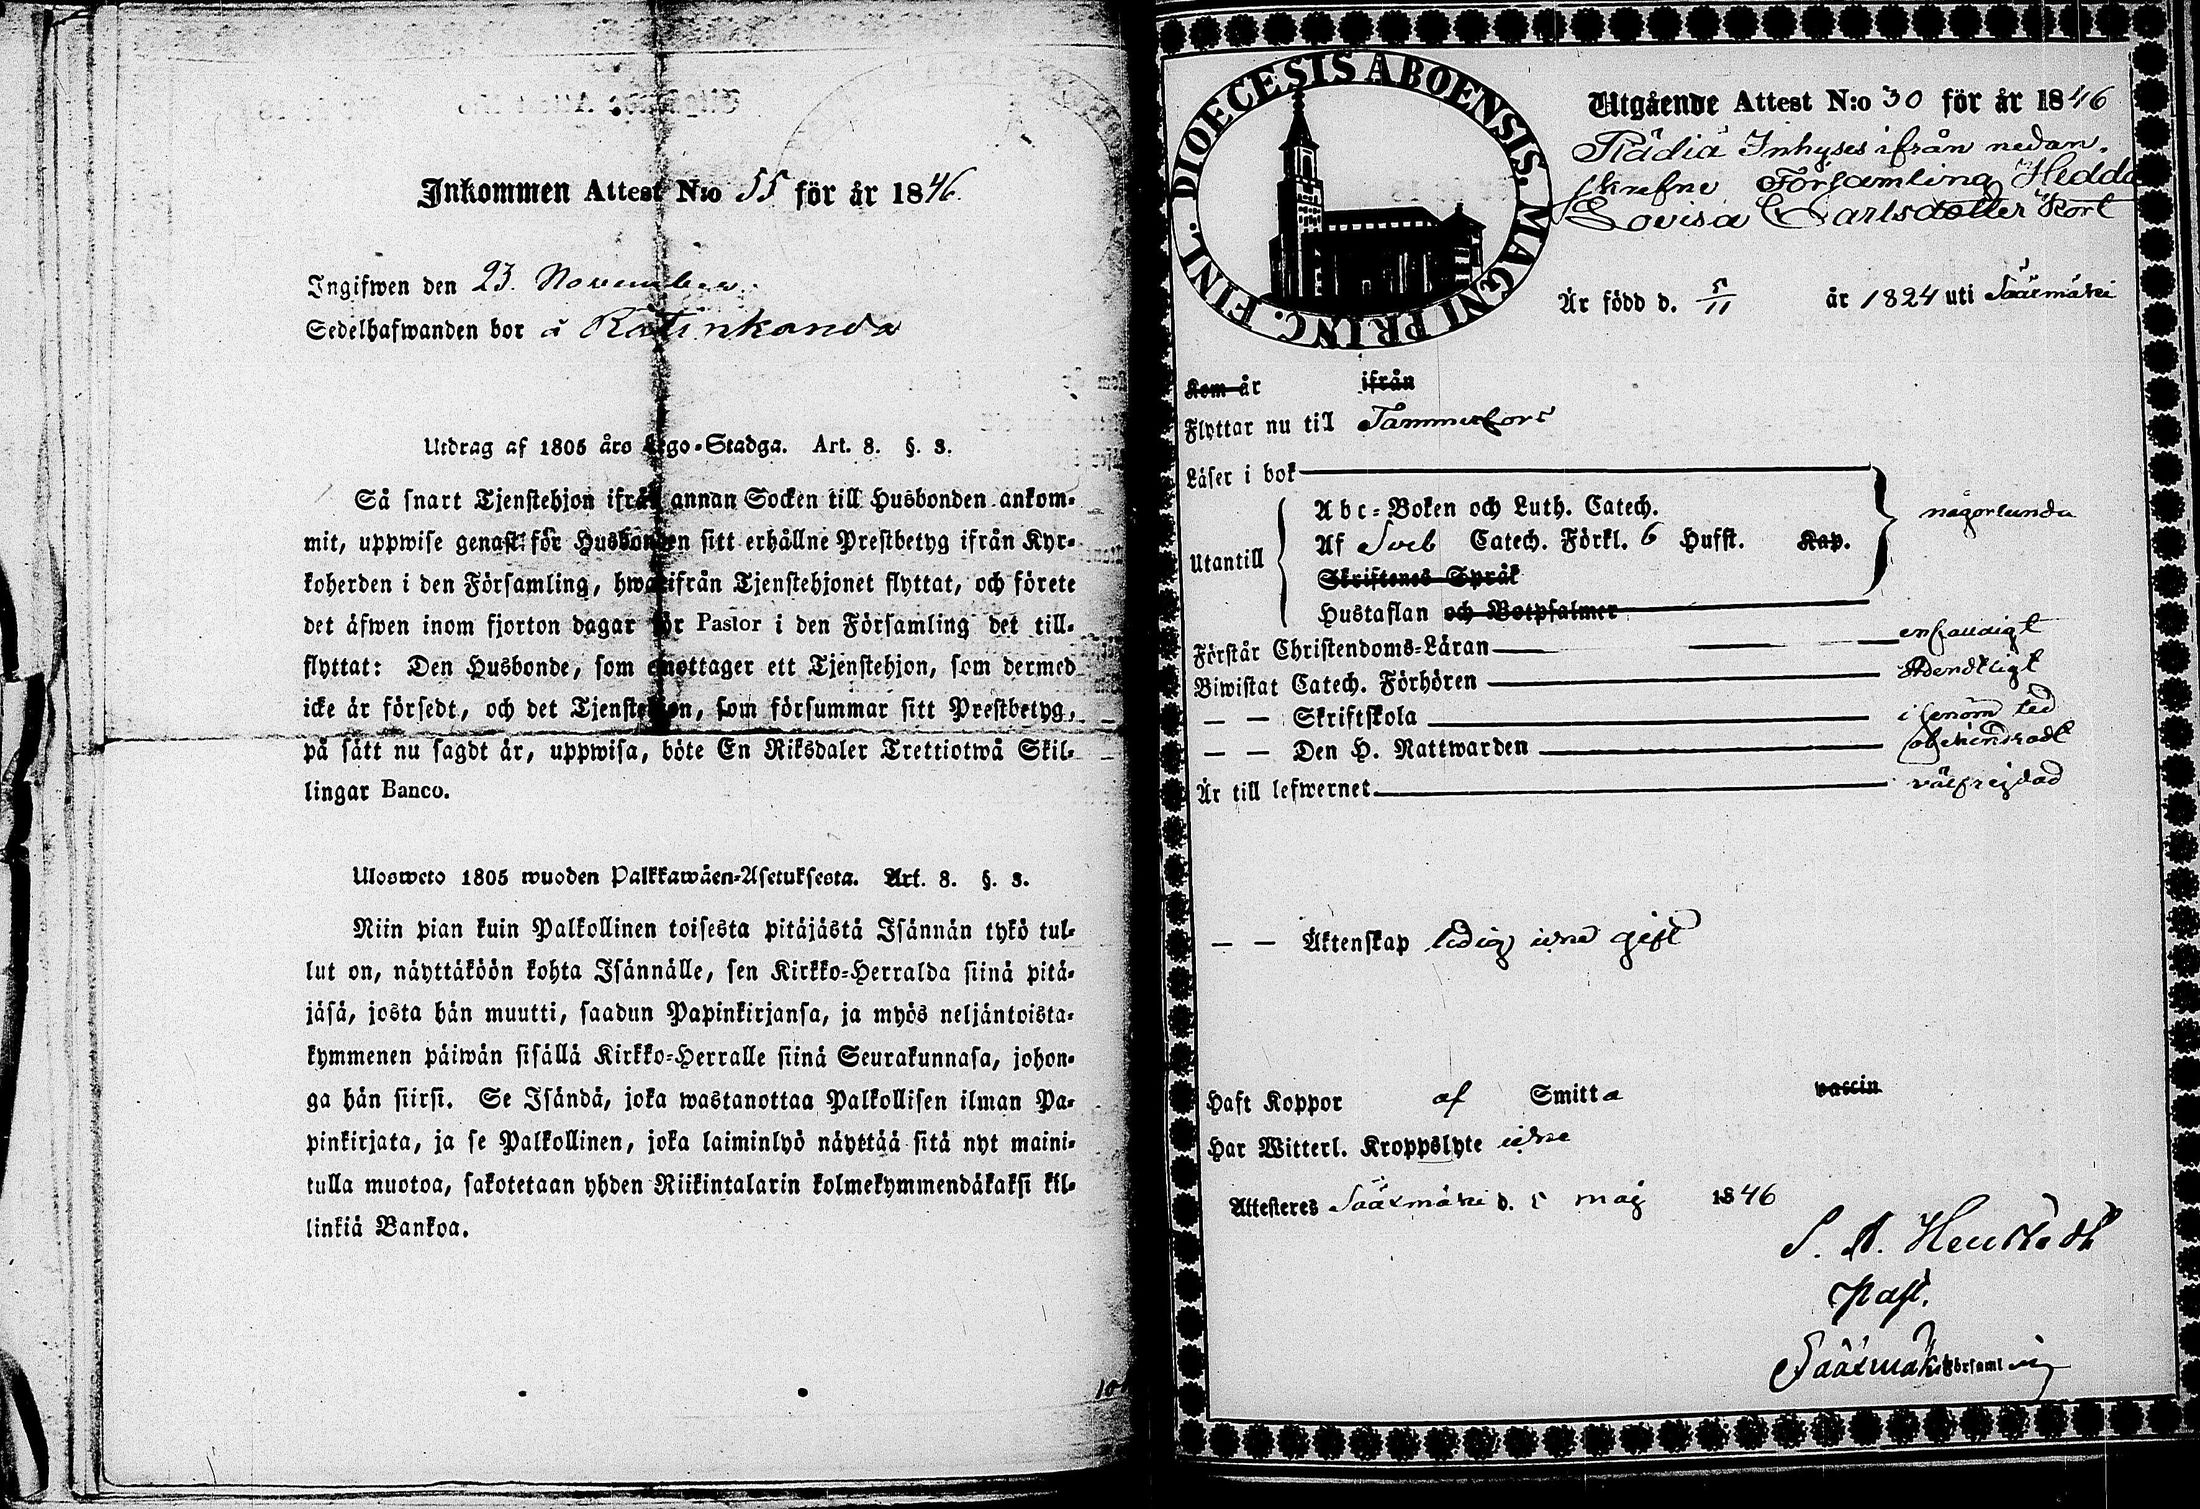 Inkommen Attest N:o 55 för år 1846.
Ingifwen den 23. November.
Sedelhafwanden bor å Rätinkanda
Utdrag af 1805 års Lego-Stadga. Art. 8. §. 3.
Så snart Tjenstehjon ifrån annan Socken till Husbonden ankom-
mit, uppwise genast för Husbonden sitt erhållne Prestbetyg ifrån Kyr-
koherden i den Församling, hwarifrån Tjenstehjonet flyttat, och förete
det äfwen inom fjorton dagar för Pastor i den Församling det till-
flyttat: Den Husbonde, som emottager ett Tjenstehjon, som dermed
icke är försedt, och det Tjenstehjon, som försummar sitt Prestbetyg,
på sätt nu sagdt är, uppwisa, böte En Riksdaler Trettiotwå Skil-
lingar Banco.
Ulosweto 1805 wuoden Palkkawäen-Asetuksesta. Art. 8. §. 3.
Niin pian kuin Palkollinen toisesta pitäjästä Isännän tykö tul-
lut on, näyttäköön kohta Isännälle, sen Kirkko-Herralda siinä pitä-
jäsä, josta hän muutti, saadun Papinkirjansa, ja myös neljäntoista-
kymmenen päiwän sisällä Kirkko-Herralle siinä Seurakunnasa, johon-
ga hän siirsi. Se Isändä, joka wastanottaa Palkollisen ilman Pa-
pinkirjata, ja se Palkollinen, joka laiminlyö näyttää sitä nyt maini-
tulla muotoa, sakotetaan yhden Riikintalarin kolmekymmendäkaksi kil-
linkiä Bankoa.
DIOECESIS ABOENSIS. MAGNI PRINC. FINL.
Utgående Attest N:o 30 för år 1846
Inhyses ifrån nedan.
skrefne Församling Hedda
Lovisa Carlsdotter Kort
Är född d. 5/11 år 1824 uti Sääxmäki
Kom år ifrån
Flyttar nu till Tammerfors
Läser i bok
Abc-Boken och Luth. Catech.
någorlunda
Utantill
Af Sveb Catech. Förkl. 6 Hufst. Kap.
Skriftenes Språk
Hustaflan och Botpsalmer
Förstår Christendoms-Läran enfaldigt
Biwistat Catech. Förhören ordentligt
— — Skriftskola igenom ted
— — Den H. Nattwarden obehindradt
Är till lefwernet välfrejdad
— — Äktenskap ledig icke gift
Haft Koppor af Smitta vaccin
Har Witterl. Kroppslyte icke
Attesteres Sääxmäki d. 5 maj 1846
Past.
Sääxmäki Församling